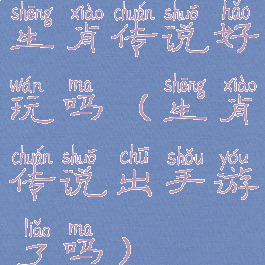 shēng xiào chuán shuō hǎo
生肖传说好
wán ma shēng xiào
玩吗(生肖
chuán shuō chū shǒu yóu
传说出手游
liǎo ma
了吗)